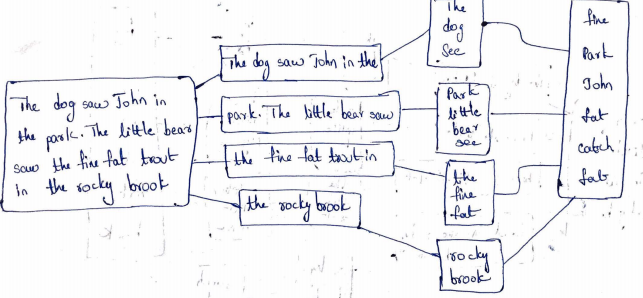 The dog saw John in
the park. The little bear
saw the fine fat trout
in the rocky brook
The dog saw John in the
park. The little bear saw
the fine fat trout in
the rocky brook
The
dog
See
Park
little
bear
see
the
fine
fat
rocky
brook
fine
Park
John
fat
catch
fat